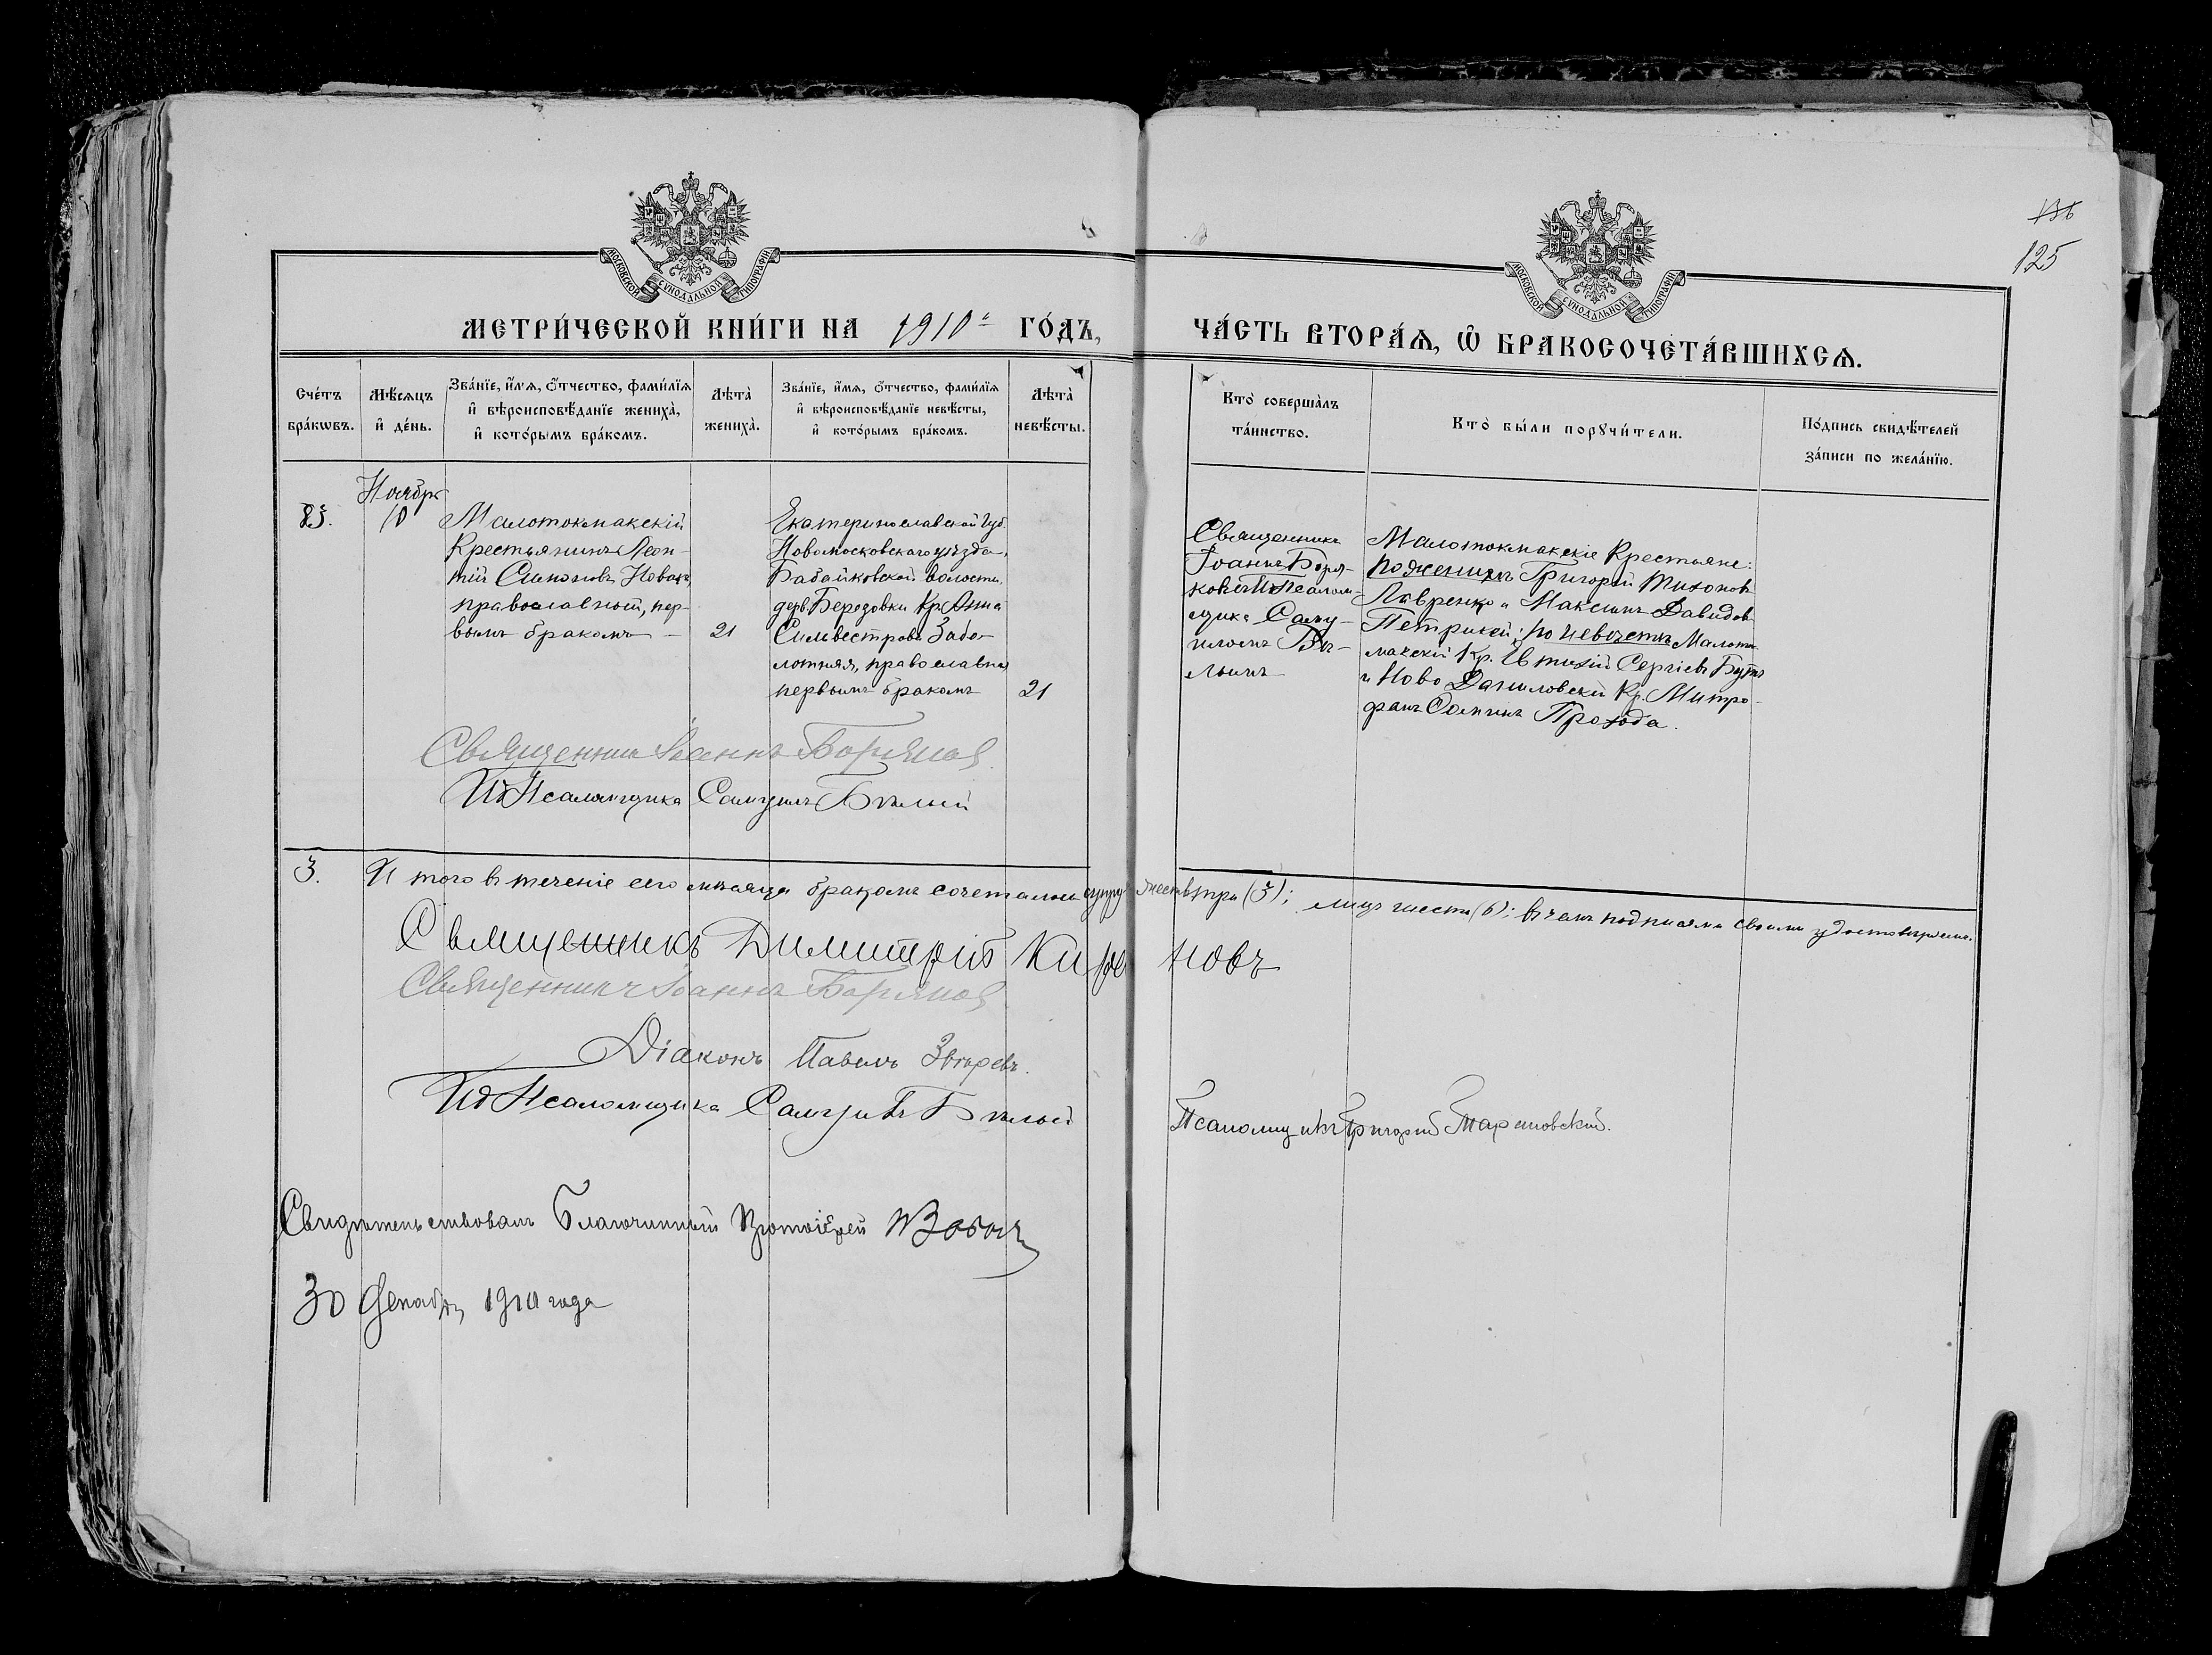 136
125
МОСКОВСКОЙ СѴНОДАЛЬНОЙ ТИПОГРАФІИ
МОСКОВСКОЙ СѴНОДАЛЬНОЙ ТИПОГРАФІИ
МЕТРИ́ЧЕСКОЙ КНИ́ГИ НА 1910 ГО́ДЪ,
ЧА́СТЬ ВТОРА́Ѧ, Ѡ҆ БРАКОСОЧЕТА́ВШИХСѦ.
Сче́тъ
бра́кѡвъ.
Мѣ́сѧцъ
и҆ де́нь.
Зва́нїе, и҆́мѧ, ѻ҆́тчество, фами́лїѧ
и҆ вѣроисповѣ́данїе жениха̀,
и҆ кото́рымъ бра́комъ.
Лѣта̀
жениха̀.
Зва́нїе, и҆́мѧ, ѻ҆́тчество, фами́лїѧ
и҆ вѣроисповѣ́данїе невѣ́сты,
и҆ кото́рымъ бра́комъ.
Лѣта̀
невѣ́сты.
Кто̀ соверша̀лъ
та́инство.
Кто̀ бы́ли порꙋчи́тели.
По́дпись свидѣ́телей
за́писи по жела́нїю.
83.
Ноября
10
Малотокмакскій
Крестьянинъ Леон-
тій Симоновъ Новакъ
православный, пер-
вымъ бракомъ
21
Екатеринославской Губ.
Новомосковскаго уѣзда,
Бабайковской волости,
дерв. Березовки Кр. Анна
Силвестрова Забо-
лотняя, православная
первымъ бракомъ
21
Священникъ
Іоаннъ Боря-
ковъ И. д. Псалом-
щика Саму-
иломъ Бѣ-
лымъ
Малотокмакскіе Крестьяне:
по женихѣ Григорій Тихоновъ
Лавренко и Максимъ Давидовъ
Петрикей; по невестѣ Малоток-
макскій Кр. Евтихій Сергіевъ Бутъ
и Ново Даниловскій Кр. Митро-
фанъ Фоминъ Прохода.
Священникъ Іоаннъ Боряковъ
И д Псаломщика Самуилъ Бѣлый
3.
И того въ теченіе сего мѣсяца бракомъ сочеталось супружествъ три (3); лицъ шесть (6); въ чемъ подписями своими удостовѣряемъ.
Священникъ Димитрій Киряновъ
Священникъ Іоаннъ Боряковъ
Діаконъ Павелъ Звѣревъ.
И д Псаломщика Самуилъ Бѣлый
Псаломщикъ Григорій Тарановскій.
Свидѣтельствовалъ Благочинный Протоіерей
30 Декабря 1910 года